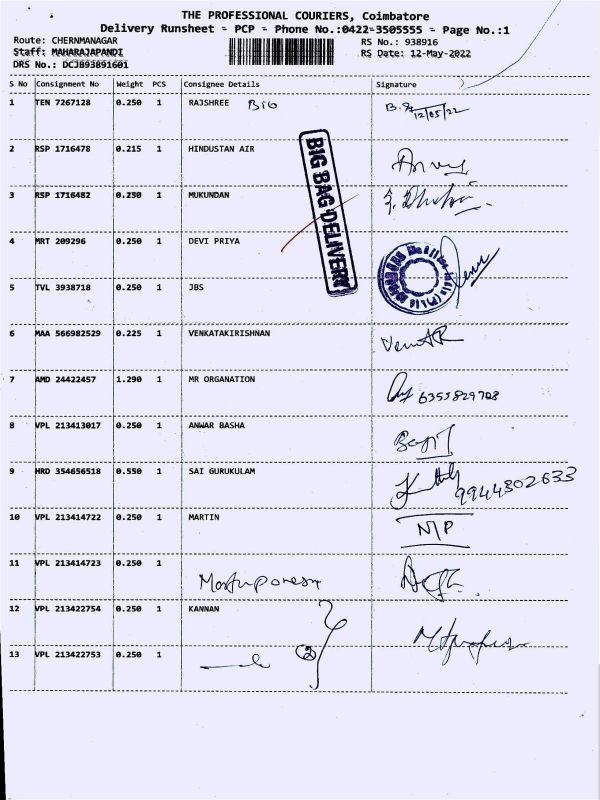 THE PROFESSIONAL COURIERS, Coimbatore
Delivery Runsheet - PCP - Phone No.:0422-3505555 - Page No.:1
Route: CHERNMANAGAR RS No.: 938916
Staff: MAHARAJAPANDI RS Date: 12-May-2022
DRS No.: DCJ893891601
S No Consignment No Weight PCS Consignee Details Signature
1 TEN 7267128 0.250 1 RAJSHREE Big
12/05/22
2 RSP 1716478 0.215 1 HINDUSTAN AIR
BIG BAG DELIVERY
3 RSP 1716482 0.250 1 MUKUNDAN
4 MRT 209296 0.250 1 DEVI PRIYA
5 TVL 3938718 0.250 1 JBS
6 MAA 566982529 0.225 1 VENKATAKIRISHNAN
7 AMD 24422457 1.290 1 MR ORGANATION 6355829708
8 VPL 213413017 0.250 1 ANWAR BASHA
9 HRD 354656518 0.550 1 SAI GURUKULAM 9944302633
10 VPL 213414722 0.250 1 MARTIN N/P
11 VPL 213414723 0.250 1
12 VPL 213422754 0.250 1 KANNAN
13 VPL 213422753 0.250 1 2